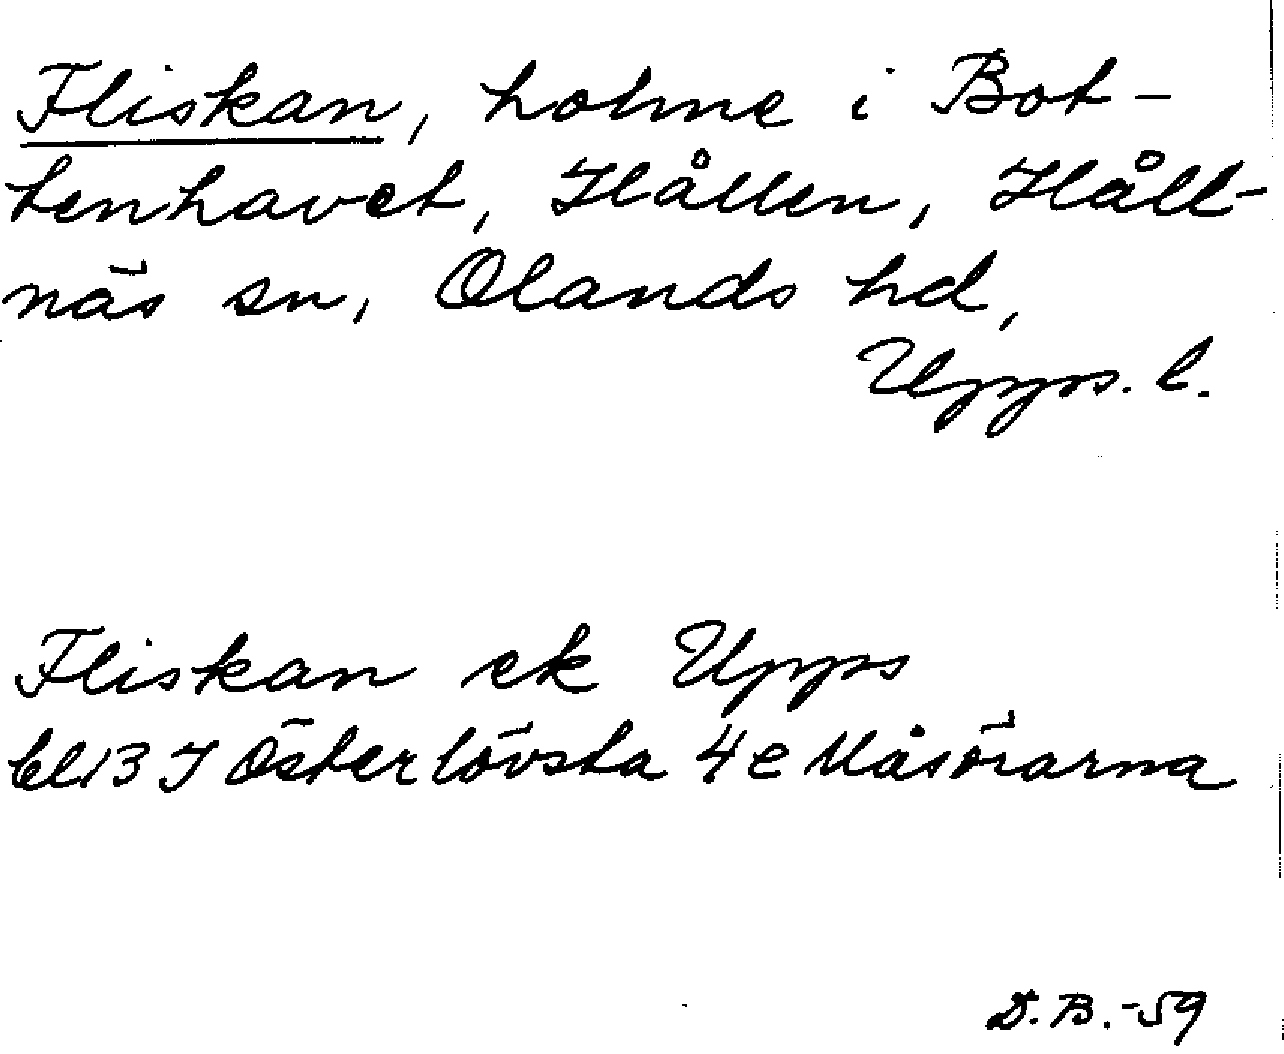 Fliskan, holme i Bot-
tenhavet, Hållen, Håll-
näs sn, Olands hd,
Upps. l.
Fliskan ek Upps
bl 13 I Österlövsta 4 e Måsörarna
D.B.-59